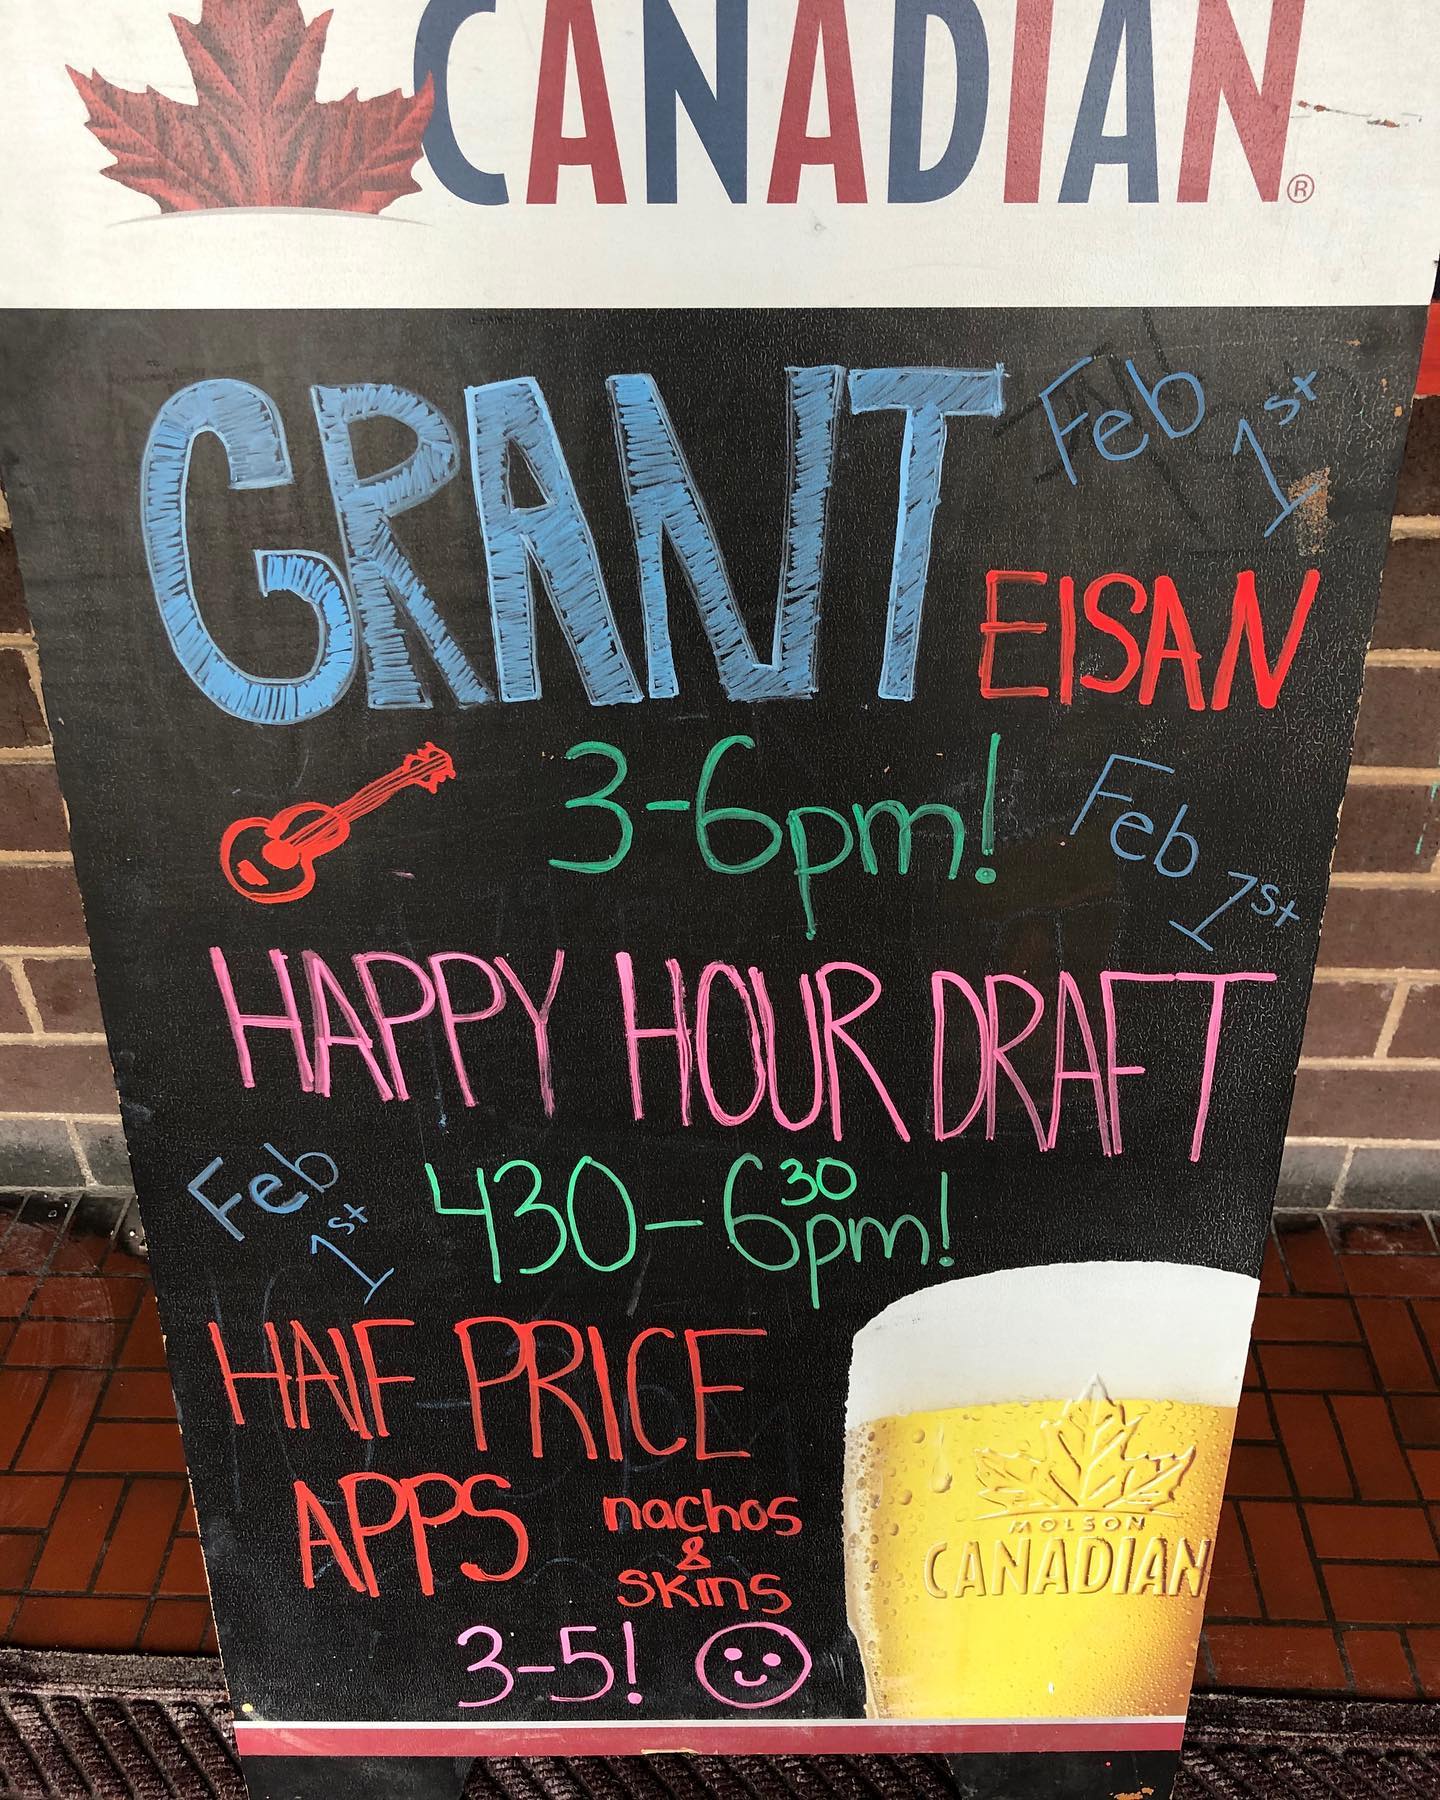 CANADIAN®
GRANT
Feb
1st
EISAN
3-6pm!
Feb
1st
HAPPY HOUR DRAFT
Feb
1st
430-630pm!
HALF PRICE
APPS
nachos
&
skins
3-5!
MOLSON
CANADIAN